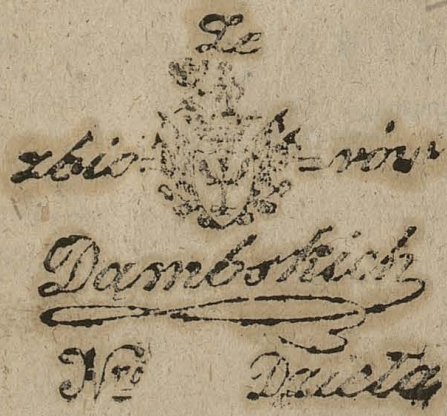 Ze
zbio=rów
Dąmbskich
Nro Dzieła